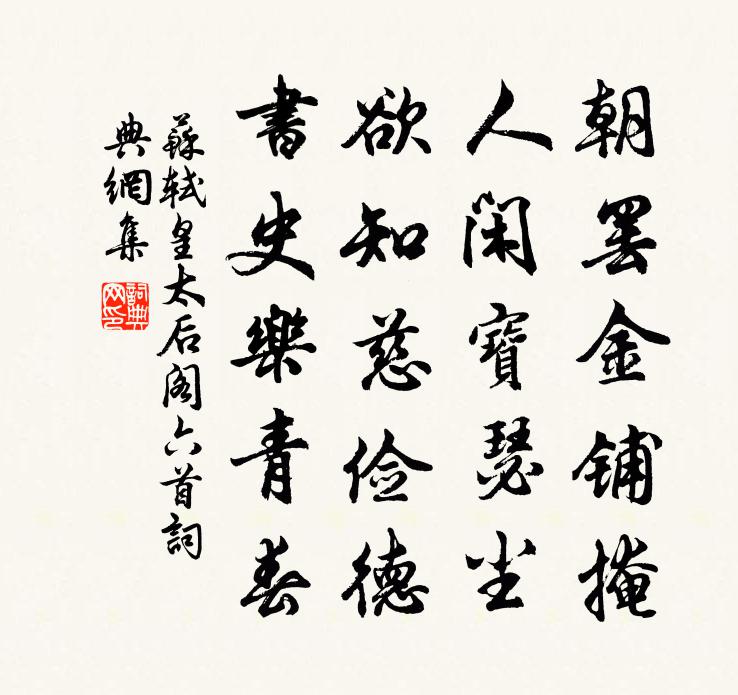 朝罢金铺掩
人闲寶瑟尘
欲知慈俭德
書史樂青春
蘇軾皇太后阁六首詞
典網集
詞典网印